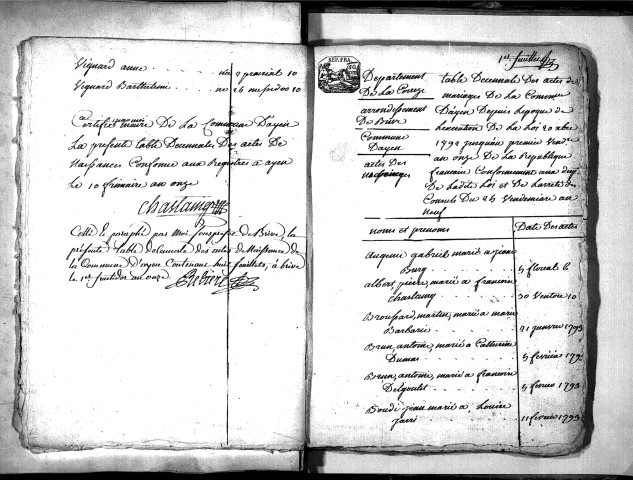 Vignard anne . . . née 2 prairial 10
Vignard Barthelemi . . né 26 messidor 10
Certifiés par moi maire De La Commune D'ayen
La presente table Decennale Des actes De
Naissances Conforme aux Registres a ayen
Le 10 frimaire an onze
Chastaing
Cotté & paraphé par Moi Souspréfet de Brive, la
présente table décennale des actes de Naissance de
la Commune D'ayen Contenant huit feuillets, à brive
le 1er fructidor an onze.
REP. FRA.
1er feuillet
Departement
De La Correze
arrondissement
De Brive
Commune
D'ayen
actes Des
mariages
table Decennale Des actes de
mariages De La Commune
D'ayen Depuis Lepoque de
Lexecution De La Loi 20 xbre
1792 jusquau premier Vende.
an onze De La Republique
francaise Conformement aux disp.
De Ladite Loi et De Larreté des
Consuls Du 25 Vendemiaire an
neuf
noms et prenoms
Date Des actes
augenie gabriel marié a jeane
Burg . . . 5 floreal 6
albert, pierre, marié a francoise
Chastaing . . . 30 Ventose 10
Broussard, martin, marié a marie
Barbarie . . . 21 janvier 1793
Brun, antoine, marié a Catherine
Dumas . . . 5 fevrier 179
Brun, antoine, marié a francoise
Delgoulet . . . 5 fevrier 1793
Boudi jean marié a Louise
jarri . . . 11 fevrier 1793